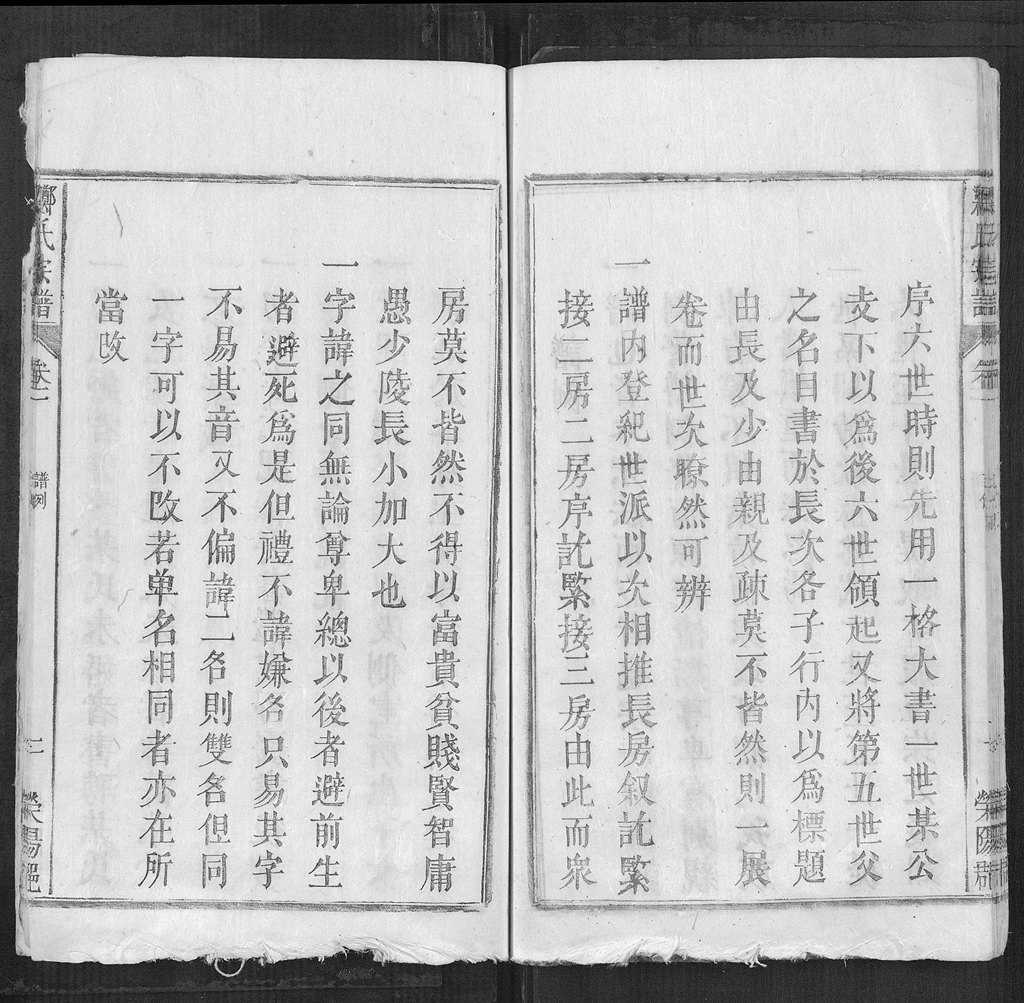 序六世時則先用一格大書一世某公
支下以爲後六世領起又將第五世父
之名日書於長次各子行内以爲標題
由長及少由親及疎莫不皆然則一展
卷而世次瞭然可辨
一譜内登紀世派以次相推長房叙訖緊
接二房二房序訖緊接三房由此而衆
房莫不皆然不得以富貴貧賤賢智庸
愚少陵長小加大也
一字諱之同無論尊卑總以後者避前生
者避死爲是但禮不諱嫌名只易其字
不易其音又不偏諱二名則雙名但同
一字可以不改若单名相同者亦在所
當改
鄭氏宗譜
卷之一
譜例
二
滎陽郡